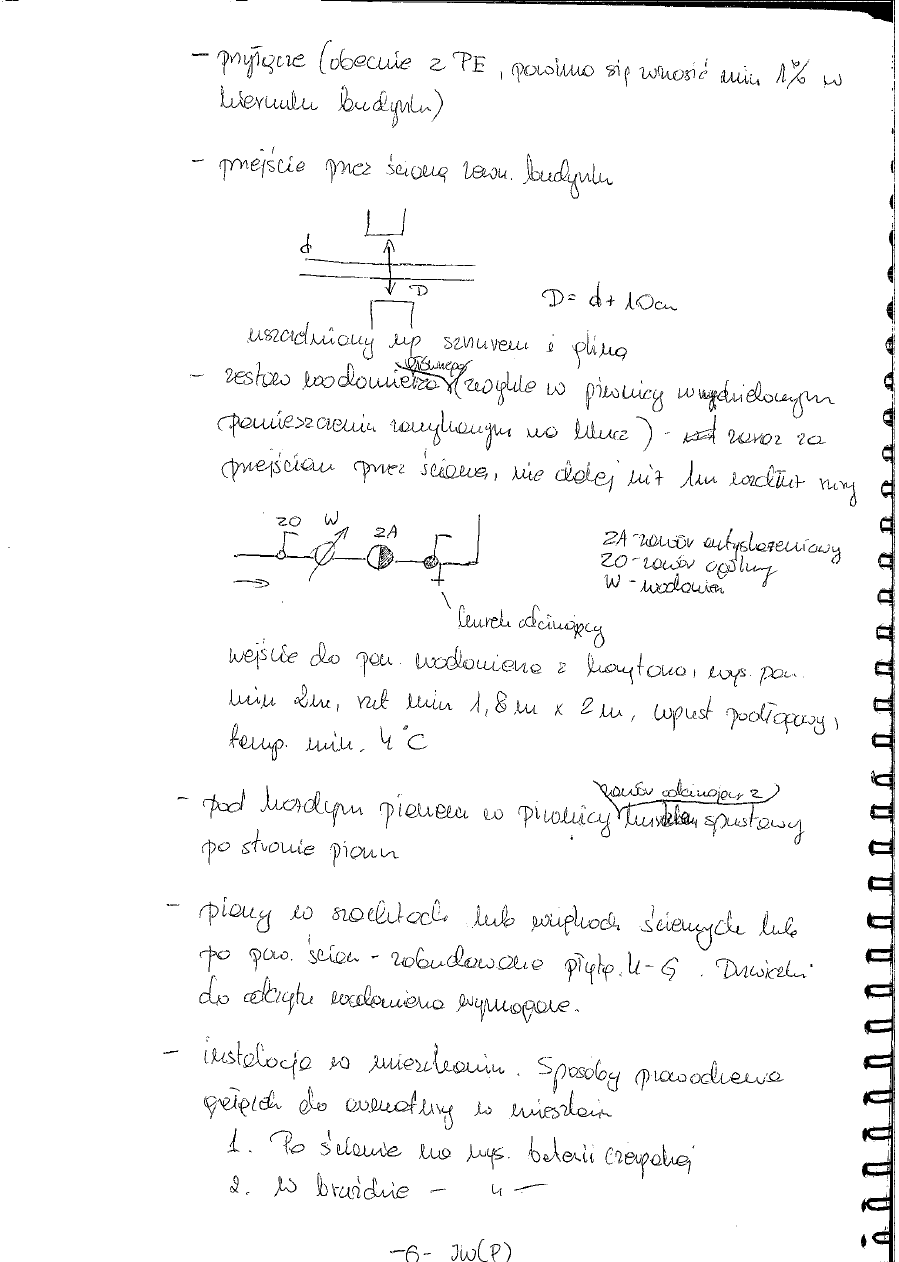 - przyłącze (obecnie z PE, powinno się wnosić min 1% w
kierunku budynku)
- przejście przez ścianę zewn. budynku
d
D
D = d + 10cm
uszczelniony np sznurem i gliną
głównego
- zestaw wodomierza (zwykle w piwnicy w wydzielonym
pomieszczeniu zamykanym na klucz) - zaraz za
przejściem przez ścianę, nie dalej niż 1m wzdłuż rury
ZO W ZA
ZA - zawór antyskażeniowy
ZO - zawór ogólny
W - wodomierz
kurek odcinający
wejście do pom. wodomierza z korytarza, wys. pom.
min 2m, rzut min 1,8m x 2m, wpust podłogowy,
temp. min. 4°C
zawór odcinający z
- pod każdym pionem w piwnicy spustowy
po stronie pionu
- piony w szachtach lub wnękach ściennych lub
po pow. ścian - zabudowane płytą K-G. Drzwiczki
do odczytu wodomierza wymagane.
- instalacja w mieszkaniu. Sposoby prowadzenia
gałęzi do armatury w mieszkaniu
1. Po ścianie na wys. baterii czerpalnej
2. W bruździe - 〃 -
-6- JW(P)